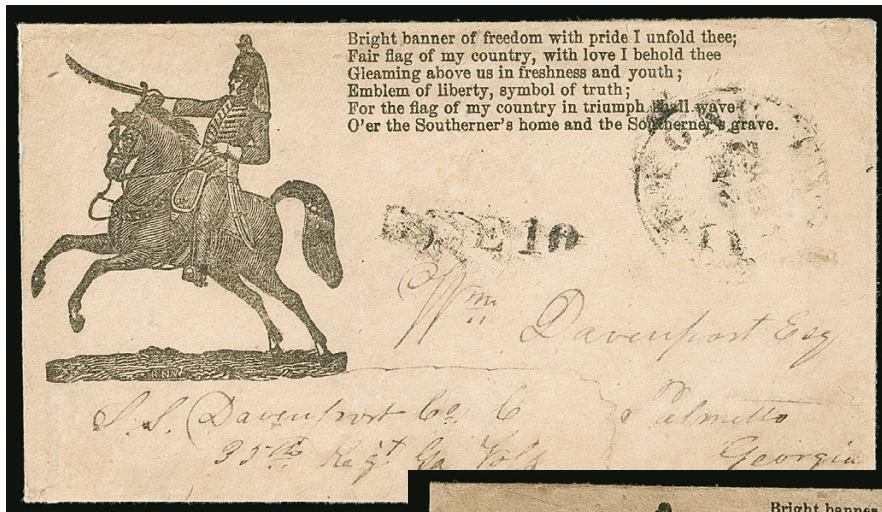 Bright banner of freedom with pride I unfold thee;
Fair flag of my country, with love I behold thee
Gleaming above us in freshness and youth;
Emblem of liberty, symbol of truth;
For the flag of my country in triumph shall wave
O'er the Southerner's home and the Southerner's grave.
10
Wm Davenport Esq
Palmetto
Georgia
S. S. Davenport Co. C
35th Reg't Ga Vols
Bright banner